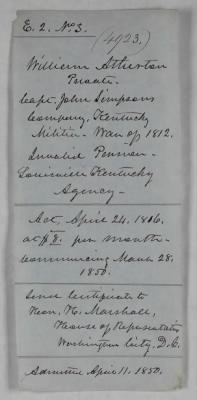 E. 2. No 3.
(4923.)
William Atherton
Private -
Capt. John Simpsons
Company, Kentucky
Militia - War of 1812.
Invalid Pension -
Louisville Kentucky
Agency -
Act, April 24. 1816.
at $8. per month -
commencing March 28,
1850.
Send Certificate to
Hon. H. Marshall,
House of Representatives
Washington City, D.C.
Admitted April 11. 1850.